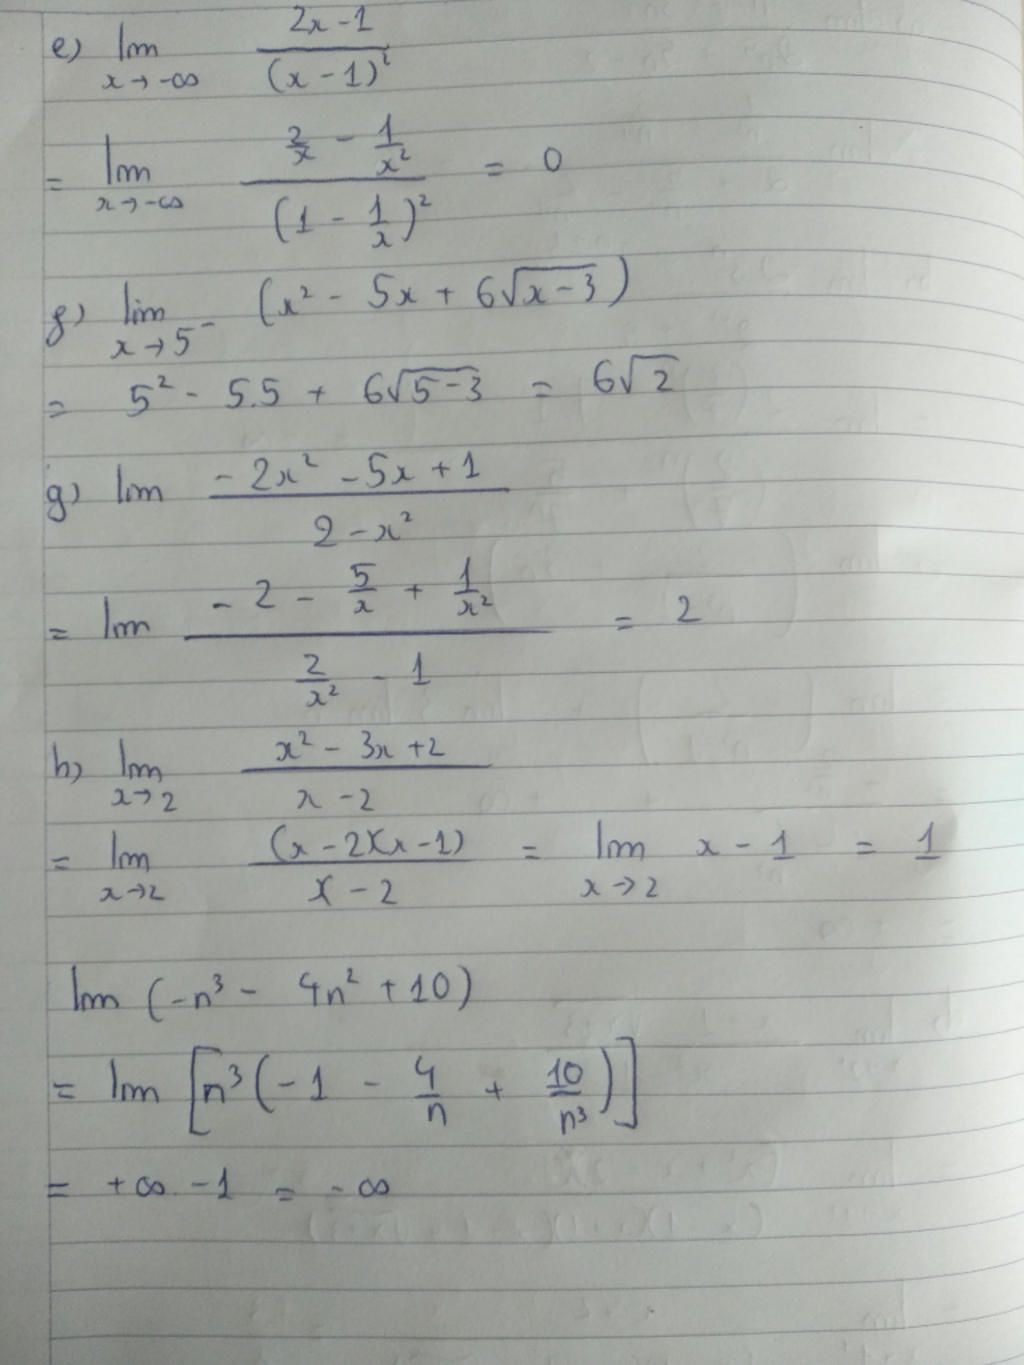 e) lim x→-∞ (2x - 1)/(x - 1)²
= lim x→-∞ (2/x - 1/x²)/(1 - 1/x)² = 0
f) lim x→5⁻ (x² - 5x + 6√(x-3))
= 5² - 5.5 + 6√(5-3) = 6√2
g) lim (-2x² - 5x + 1)/(2 - x²)
= lim (-2 - 5/x + 1/x²)/(2/x² - 1) = 2
h) lim x→2 (x² - 3x + 2)/(x - 2)
= lim x→2 (x - 2)(x - 1)/(x - 2) = lim x→2 x - 1 = 1
lim (-n³ - 4n² + 10)
= lim [n³(-1 - 4/n + 10/n³)]
= +∞ . -1 = -∞